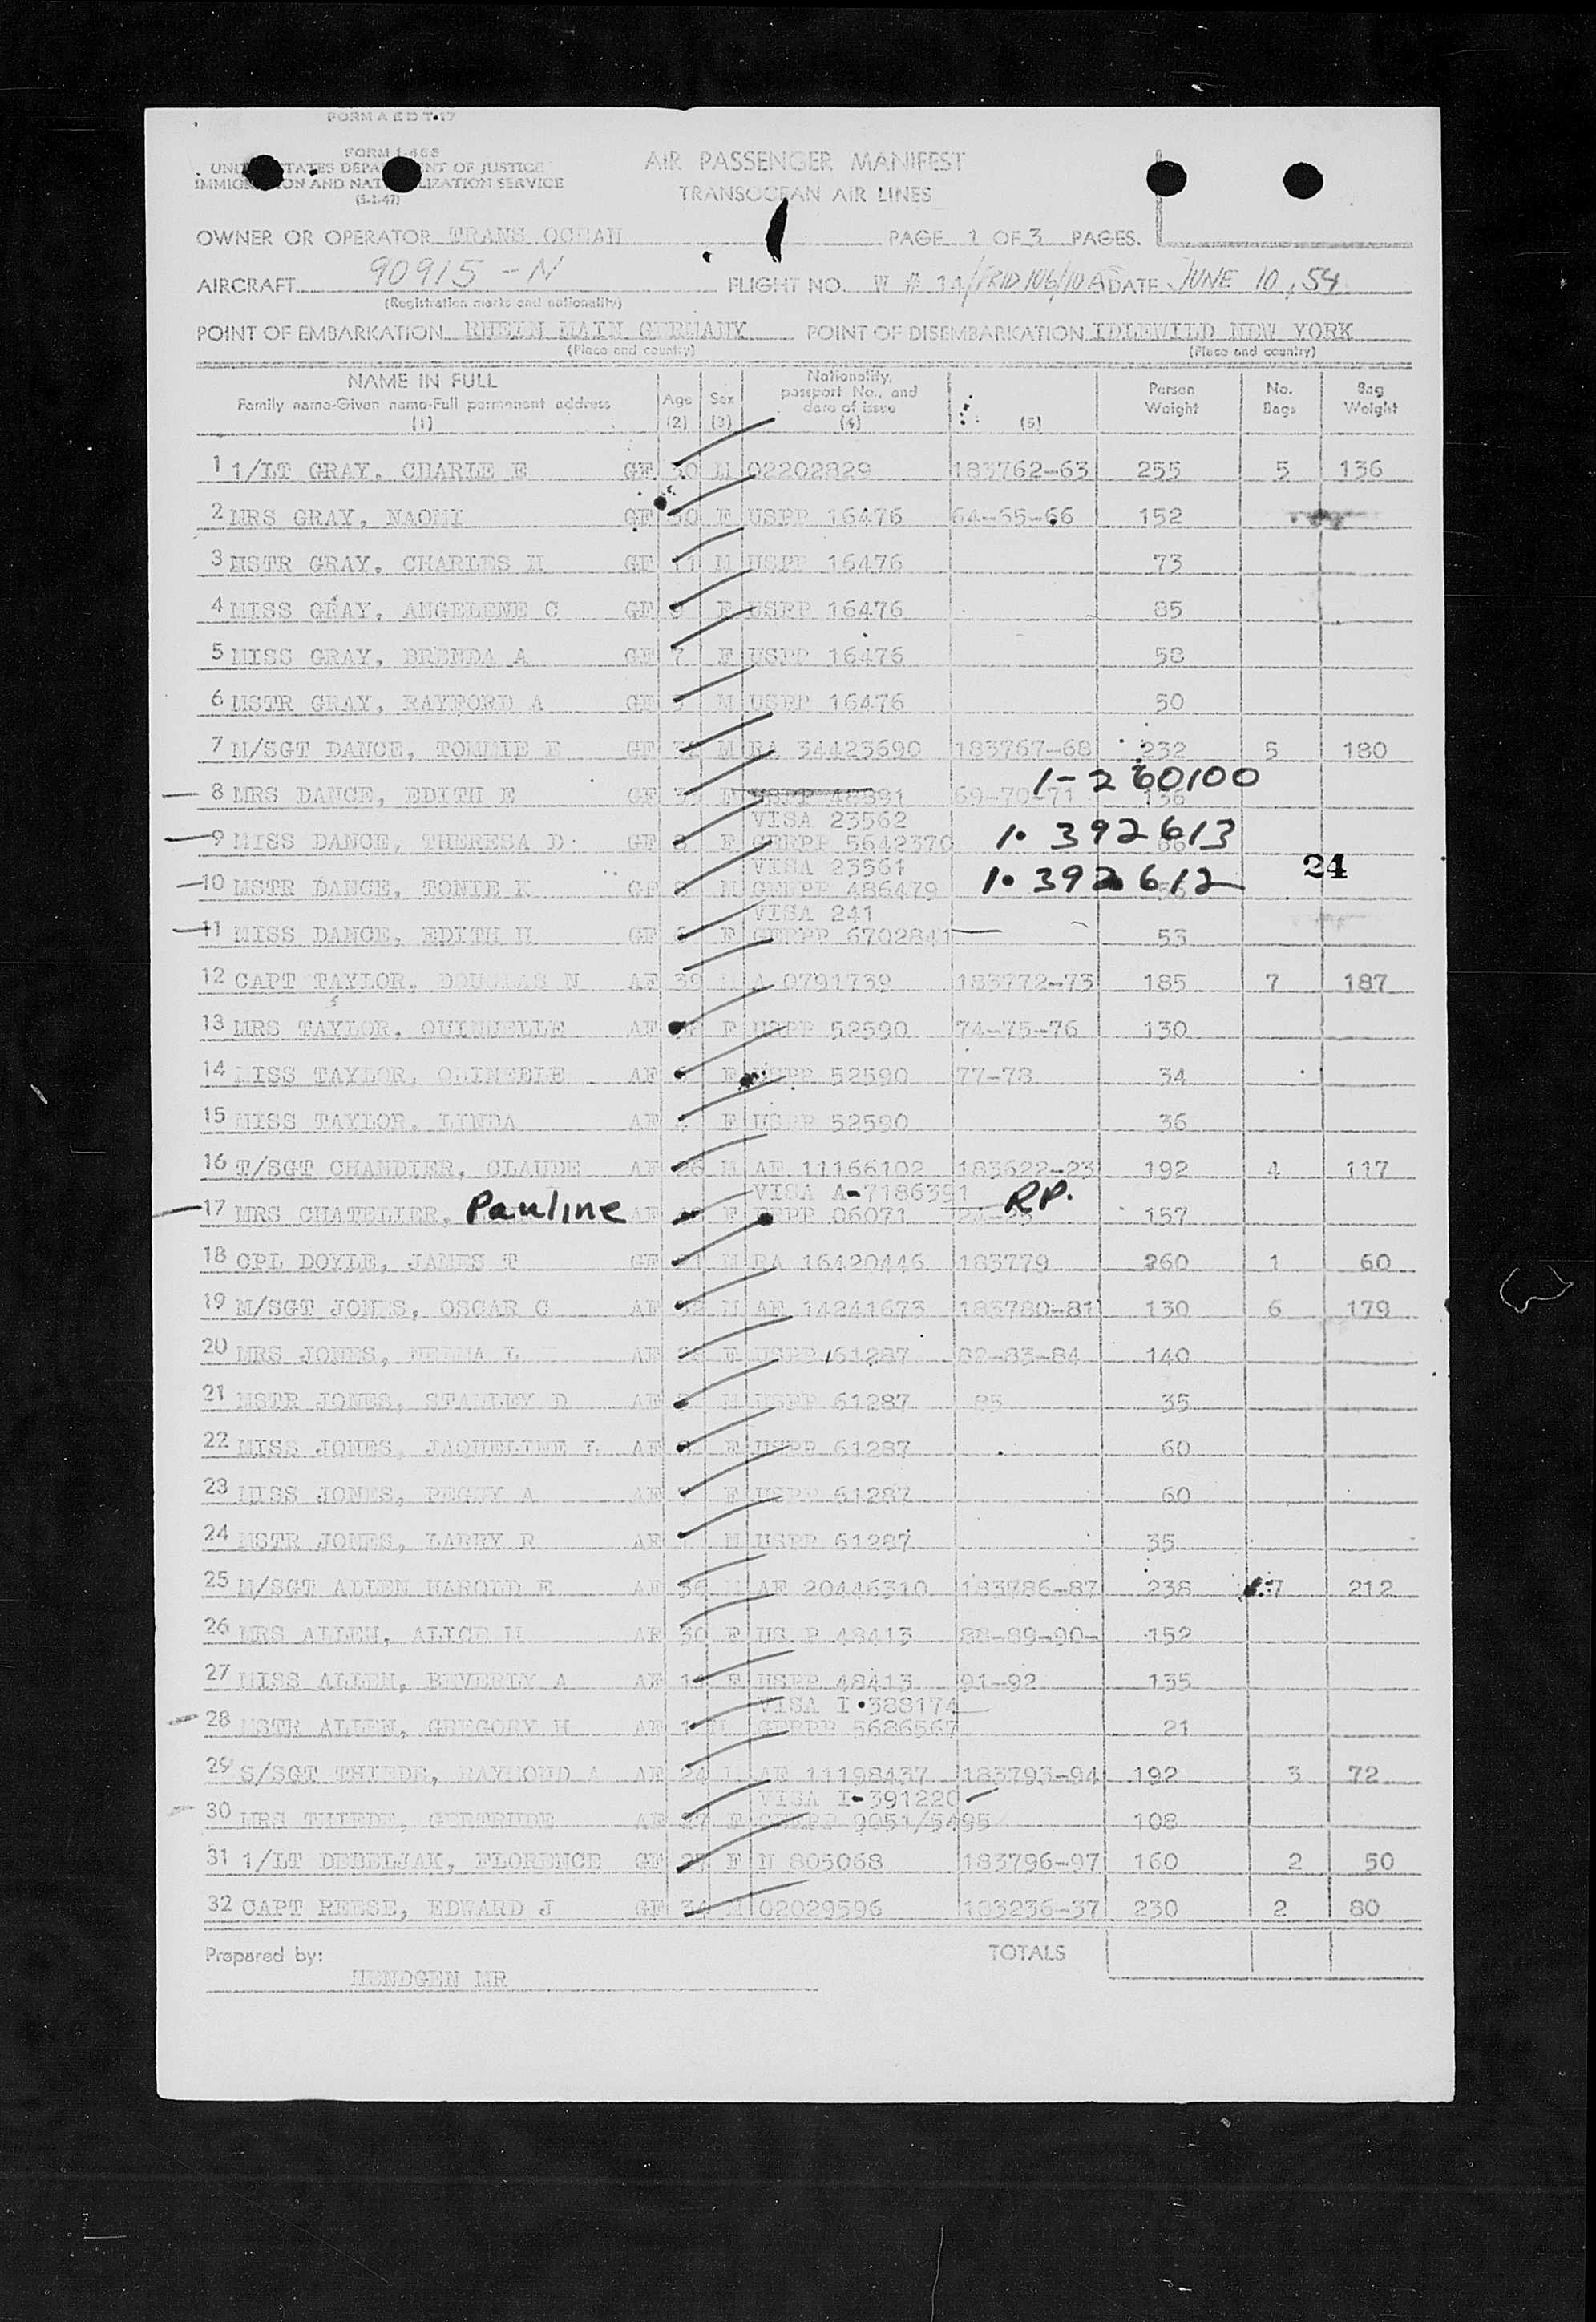 FORM A E D T-17
FORM I-466
UNITED STATES DEPARTMENT OF JUSTICE
IMMIGRATION AND NATURALIZATION SERVICE
(5-1-47)
AIR PASSENGER MANIFEST
TRANSOCEAN AIR LINES
OWNER OR OPERATOR TRANS OCEAN PAGE 1 OF 3 PAGES.
AIRCRAFT 90915-N FLIGHT NO. W # 1A/FRID106/10A DATE JUNE 10, 54
(Registration marks and nationality)
POINT OF EMBARKATION RHEIN MAIN GERMANY POINT OF DISEMBARKATION IDLEWILD NEW YORK
(Place and country) (Place and country)
NAME IN FULL
Family name-Given name-Full permanent address
(1)
Age (2) Sex (3)
Nationality, passport No., and date of issue (4)
(5)
Person Weight No. Bags Bag Weight
1 1/LT GRAY, CHARLE E GF 30 M 02202829 183762-63 255 5 136
2 MRS GRAY, NAOMI GF 30 F USPP 16476 64-65-66 152
3 MSTR GRAY, CHARLES H GF 11 M USPP 16476 73
4 MISS GRAY, ANGELENE C GF 9 F USPP 16476 85
5 MISS GRAY, BRENDA A GF 7 F USPP 16476 58
6 MSTR GRAY, RAYFORD A GF M USPP 16476 50
7 M/SGT DANCE, TOMMIE E GF M RA 34423690 183767-68 232 5 180
8 MRS DANCE, EDITH E GF F USPP 48891 69-70-71 136 1-260100
VISA 23562
9 MISS DANCE, THERESA D GF F GERPP 5642370 1. 392613
VISA 23561
10 MSTR DANCE, TONIE K GF M GERPP 486479 1. 392612
24
VISA 241
11 MISS DANCE, EDITH H GF F GERPP 6702841 53
12 CAPT TAYLOR, DOUGLAS N AF 39 M A 0791739 183772-73 185 7 187
13 MRS TAYLOR, QUINUELLE AF F USPP 52590 74-75-76 130
14 MISS TAYLOR, AF F USPP 52590 77-78 34
15 MISS TAYLOR, LINDA AF F USPP 52590 36
16 T/SGT CHANDIER, CLAUDE AF 26 M AF 11166102 183622-23 192 4 117
VISA A-7186391
17 MRS CHATELIER, Pauline AF F 06071 24-25 RP. 157
18 CPL DOYLE, JAMES T GF M RA 16420446 183779 260 1 60
19 M/SGT JONES, OSCAR C AF 32 M AF 14241673 183780-81 130 6 179
20 MRS JONES, L AF F USPP 61287 82-83-84 140
21 MSTR JONES, STANLEY D AF M USPP 61287 85 35
22 MISS JONES, JAQUELINE L AF F USPP 61287 60
23 MISS JONES, PEGGY A AF F USPP 61287 60
24 MSTR JONES, LARRY R AF M USPP 61287 35
25 M/SGT ALLEN HAROLD E AF 36 M AF 20446310 183786-87 238 7 212
26 MRS ALLEN, ALICE H AF 30 F US P 48413 88-89-90- 152
27 MISS ALLEN, BEVERLY A AF F USPP 48413 91-92 135
VISA I-388174
28 MSTR ALLEN, GREGORY H AF 1 M GERPP 5686567 21
29 S/SGT THIEDE, RAYMOND A AF 24 M AF 11198437 183793-94 192 3 72
VISA I-391220
30 MRS THIEDE, GERTRUDE AF 27 F GERPP 9051/5495 108
31 1/LT DEBELJAK, FLORENCE GF 27 F N 805068 183796-97 160 2 50
32 CAPT REESE, EDWARD J GF 34 M 02029596 183236-37 230 2 80
Prepared by: TOTALS
HENDGEN MR